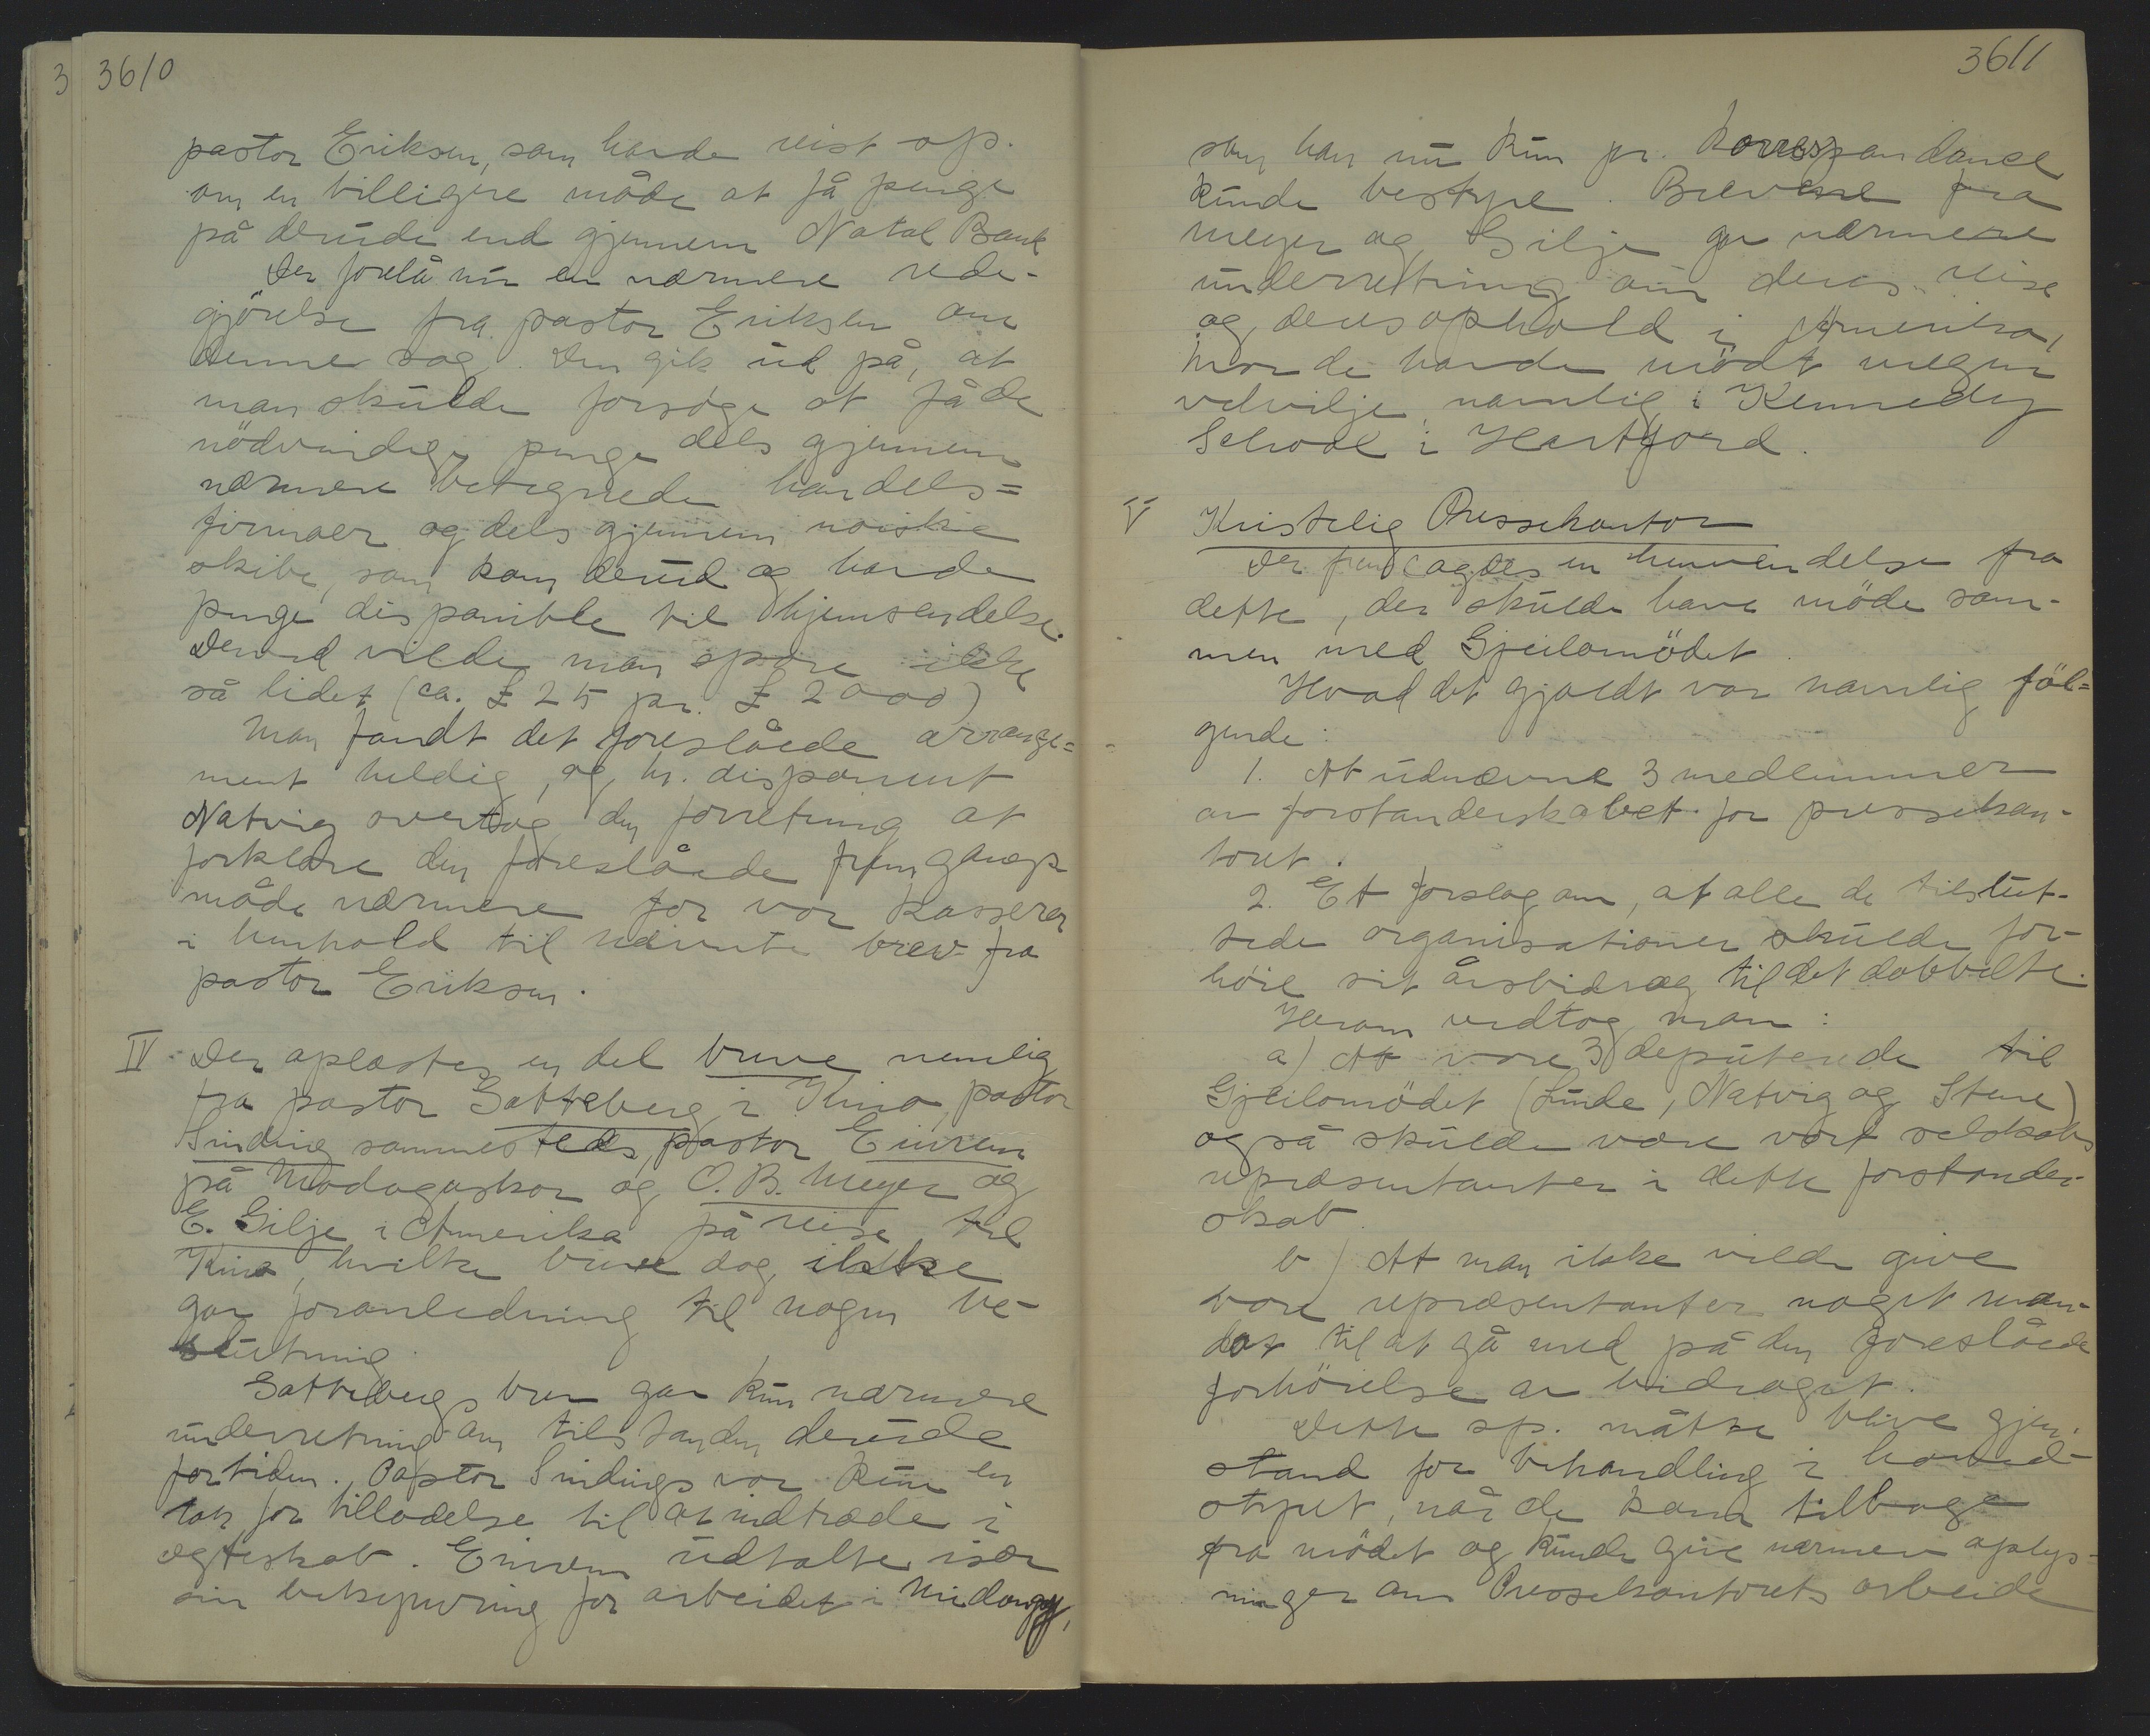 3610
pastor Eriksen, som havde vist op.
om en billigere måde at få penge
på derude end gjennem Natal Bank
Der forelå nu en nærmere rede-
gjörelse fra pastor Eriksen om
denne sag. Den gik ud på, at
man skulde forsöge at få de
nödvendige penge dels gjennem
nærmere betegnede handels=
firmaer og dels gjennem norske
skibe, som kom derud og havde
penge disponible til hjemsendelse.
Derved vilde man spare ikke
så lidet (ca. £ 25 pr. £ 2000)
Man fandt det foreslåede arrange=
ment heldig, og hr. disponent
Natvig overtog den forretning at
forklare den foreslåede fremgangs
måde nærmere for vor kasserer
i henhold til nævnte brev fra
pastor Eriksen.
IV Der oplæstes en del breve nemlig
fra pastor Sætteberg i Kina, pastor
Sinding sammesteds, pastor Einrem
på Madagaskar og O.B. Meyer og
E. Gilje i Amerika på reise til
Kina, hvilke breve dog ikke
gav foranledning til nogen be-
slutning.
Sættebergs brev gav kun nærmere
underretning om tilstanden derude
for tiden. Pastor Sindings var kun en
tak for tilladelse til at indtræde i
egteskab. Einrem udtalte især
sin bekymring for arbeidet i Midongy,
3611
som han nu kun pr. korrespondance
kunde bestyre. Brevene fra
Meyer og Gilje gav nærmere
underretning om deres reise
og deres ophold i Amerika,
hvor de havde mödt megen
velvilje navnlig i Kennedy
School i Hartford.
V Kristelig Pressekontor
Der fremlagdes en henvendelse fra
dette, der skulde have möde sam-
men med Gjeilomödet.
Hvad det gjaldt var navnlig föl=
gende:
1. At udnævne 3 medlemmer
av forstanderskabet for pressekon-
toret.
2. Et forslag om, at alle de tilslut-
tede organisationer skulde for-
höie sit årsbidrag til det dobbelte.
Herom vedtog man:
a) At vore 3 deputerede til
Gjeilomödet (Lunde, Natvig og Stene)
også skulde være vort selskabs
repræsentanter i dette forstander-
skab.
b) At man ikke vilde give
vore repræsentanter noget man-
dat til at gå med på den foreslåede
forhöielse av bidraget.
Dette sp. måtte blive gjen-
stand for behandling i hoved-
styret, når de kom tilbage
fra mödet og kunde give nærmere oplys-
ninger om Pressekontorets arbeide